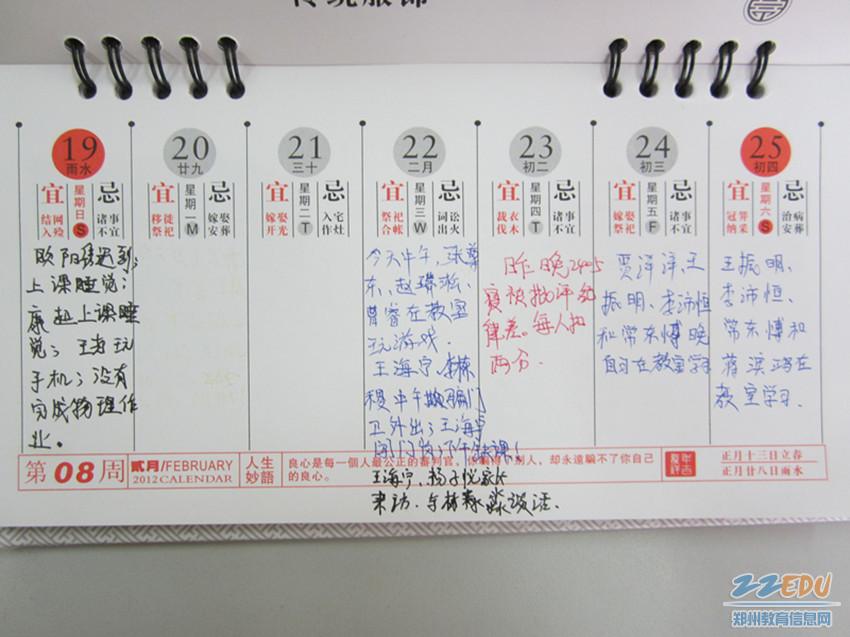 传统服饰
19
雨水
宜 星期日 S 忌
结网 诸事
入殓 不宜
欧阳 迟到；
上课睡觉；
康 上课睡
觉；王 玩
手机；没有
完成物理作
业。
20
廿九
宜 星期一 M 忌
移徙 嫁娶
祭祀 安葬
21
三十
宜 星期二 T 忌
嫁娶 入宅
开光 作灶
22
二月
宜 星期三 W 忌
祭祀 词讼
合帐 出火
今天中午，张
东、赵
曹睿在教室
玩游戏.
王海宁、李栋
稷中午 骗门
卫外出；王海宁
闭门 下午 课！
王海宁、杨子悦家长
来访.与林森淼谈话.
23
初二
宜 星期四 T 忌
裁衣 诸事
伐木 不宜
昨晚2405
寝被批评纪
律差。每人扣
两分.
24
初三
宜 星期五 F 忌
嫁娶 诸事
祭祀 不宜
贾洋洋、王
振明、李沛恒
和常东博晚
自习在教室学习
25
初四
宜 星期六 S 忌
冠笄 治病
纳采 安葬
王振明、
李沛恒、
常东博和
蒋 在
教室学习.
第08周
贰月/FEBRUARY
2012 CALENDAR
人生
妙語
良心是每一個人最公正的審判官，你騙得了別人，却永遠騙不了你自己
的良心。
正月十三日立春
正月廿八日雨水
ZZEDU
郑州教育信息网